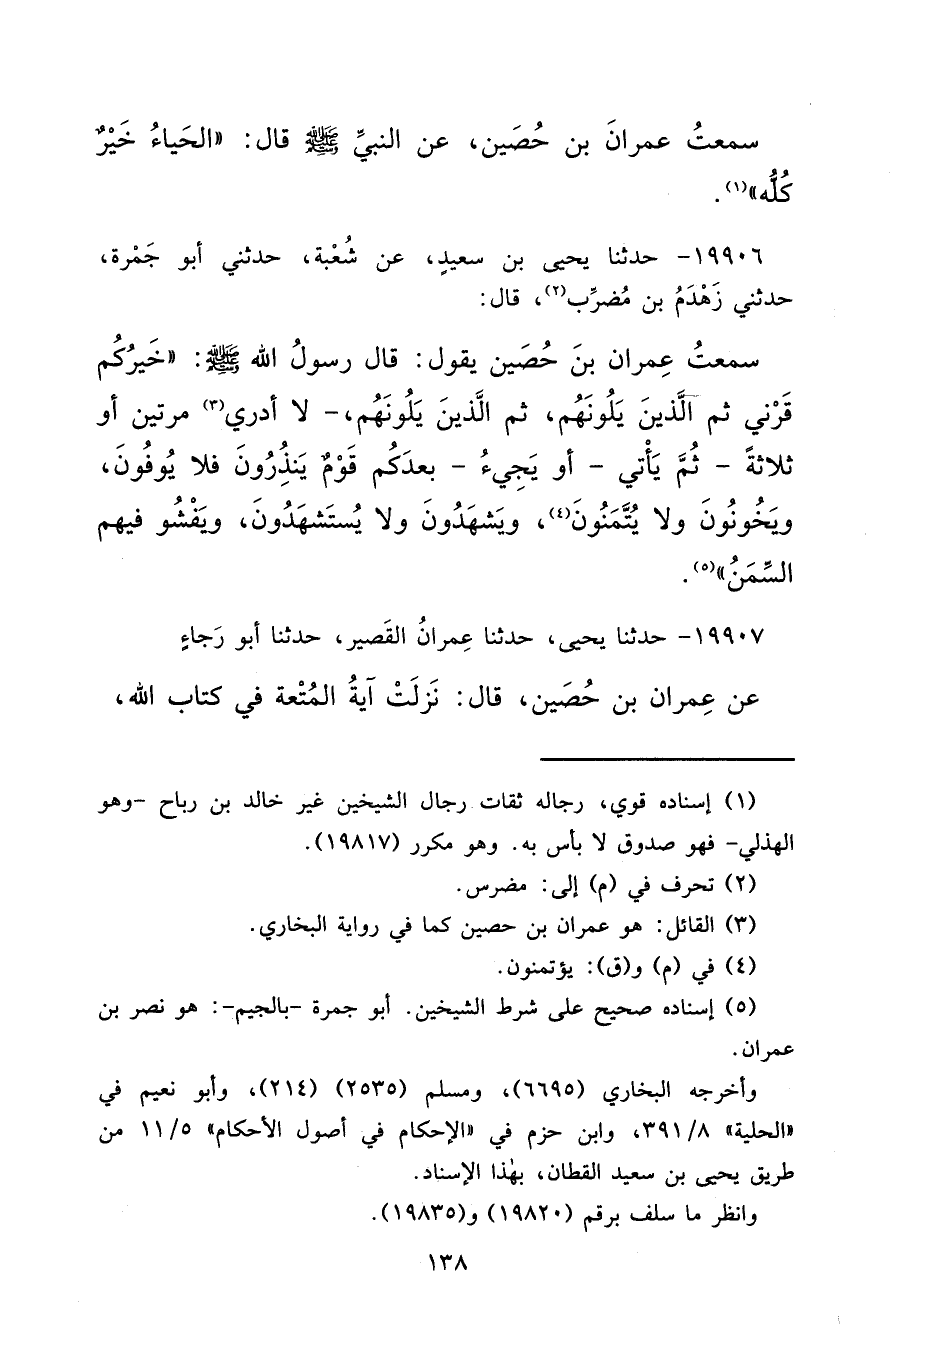 سمعتُ عمرانَ بن حُصَين، عن النبيِّ ﷺ قال: «الحَياءُ خَيْرٌ
كُلُّه»(١).
١٩٩٠٦- حدثنا يحيى بن سعيدٍ، عن شُعْبة، حدثني أبو جَمْرة،
حدثني زَهْدَمُ بن مُضرِّب(٢)، قال:
سمعتُ عِمران بنَ حُصَين يقول: قال رسولُ الله ﷺ: «خَيرُكُم
قَرْني ثم الَّذينَ يَلُونَهُم، ثم الَّذينَ يَلُونَهُم،- لا أدري(٣) مرتين أو
ثلاثةً - ثُمَّ يَأْتي - أو يَجِيءُ - بعدَكُم قَوْمٌ يَنذِرُونَ فلا يُوفُونَ،
ويَخُونُونَ ولا يُتَّمَنُونَ(٤)، ويَشهَدُونَ ولا يُستَشهَدُونَ، ويَفْشُو فيهم
السِّمَنُ»(٥).
١٩٩٠٧- حدثنا يحيى، حدثنا عِمرانُ القَصير، حدثنا أبو رَجاءٍ
عن عِمران بن حُصَين، قال: نَزلَتْ آيةُ المُتْعة في كتاب الله،
(١) إسناده قوي، رجاله ثقات رجال الشيخين غير خالد بن رباح -وهو
الهذلي- فهو صدوق لا بأس به. وهو مكرر (١٩٨١٧).
(٢) تحرف في (م) إلى: مضرس.
(٣) القائل: هو عمران بن حصين كما في رواية البخاري.
(٤) في (م) و(ق): يؤتمنون.
(٥) إسناده صحيح على شرط الشيخين. أبو جمرة -بالجيم-: هو نصر بن
عمران.
وأخرجه البخاري (٦٦٩٥)، ومسلم (٢٥٣٥) (٢١٤)، وأبو نعيم في
«الحلية» ٣٩١/٨، وابن حزم في «الإحكام في أصول الأحكام» ١١/٥ من
طريق يحيى بن سعيد القطان، بهٰذا الإسناد.
وانظر ما سلف برقم (١٩٨٢٠) و(١٩٨٣٥).
١٣٨